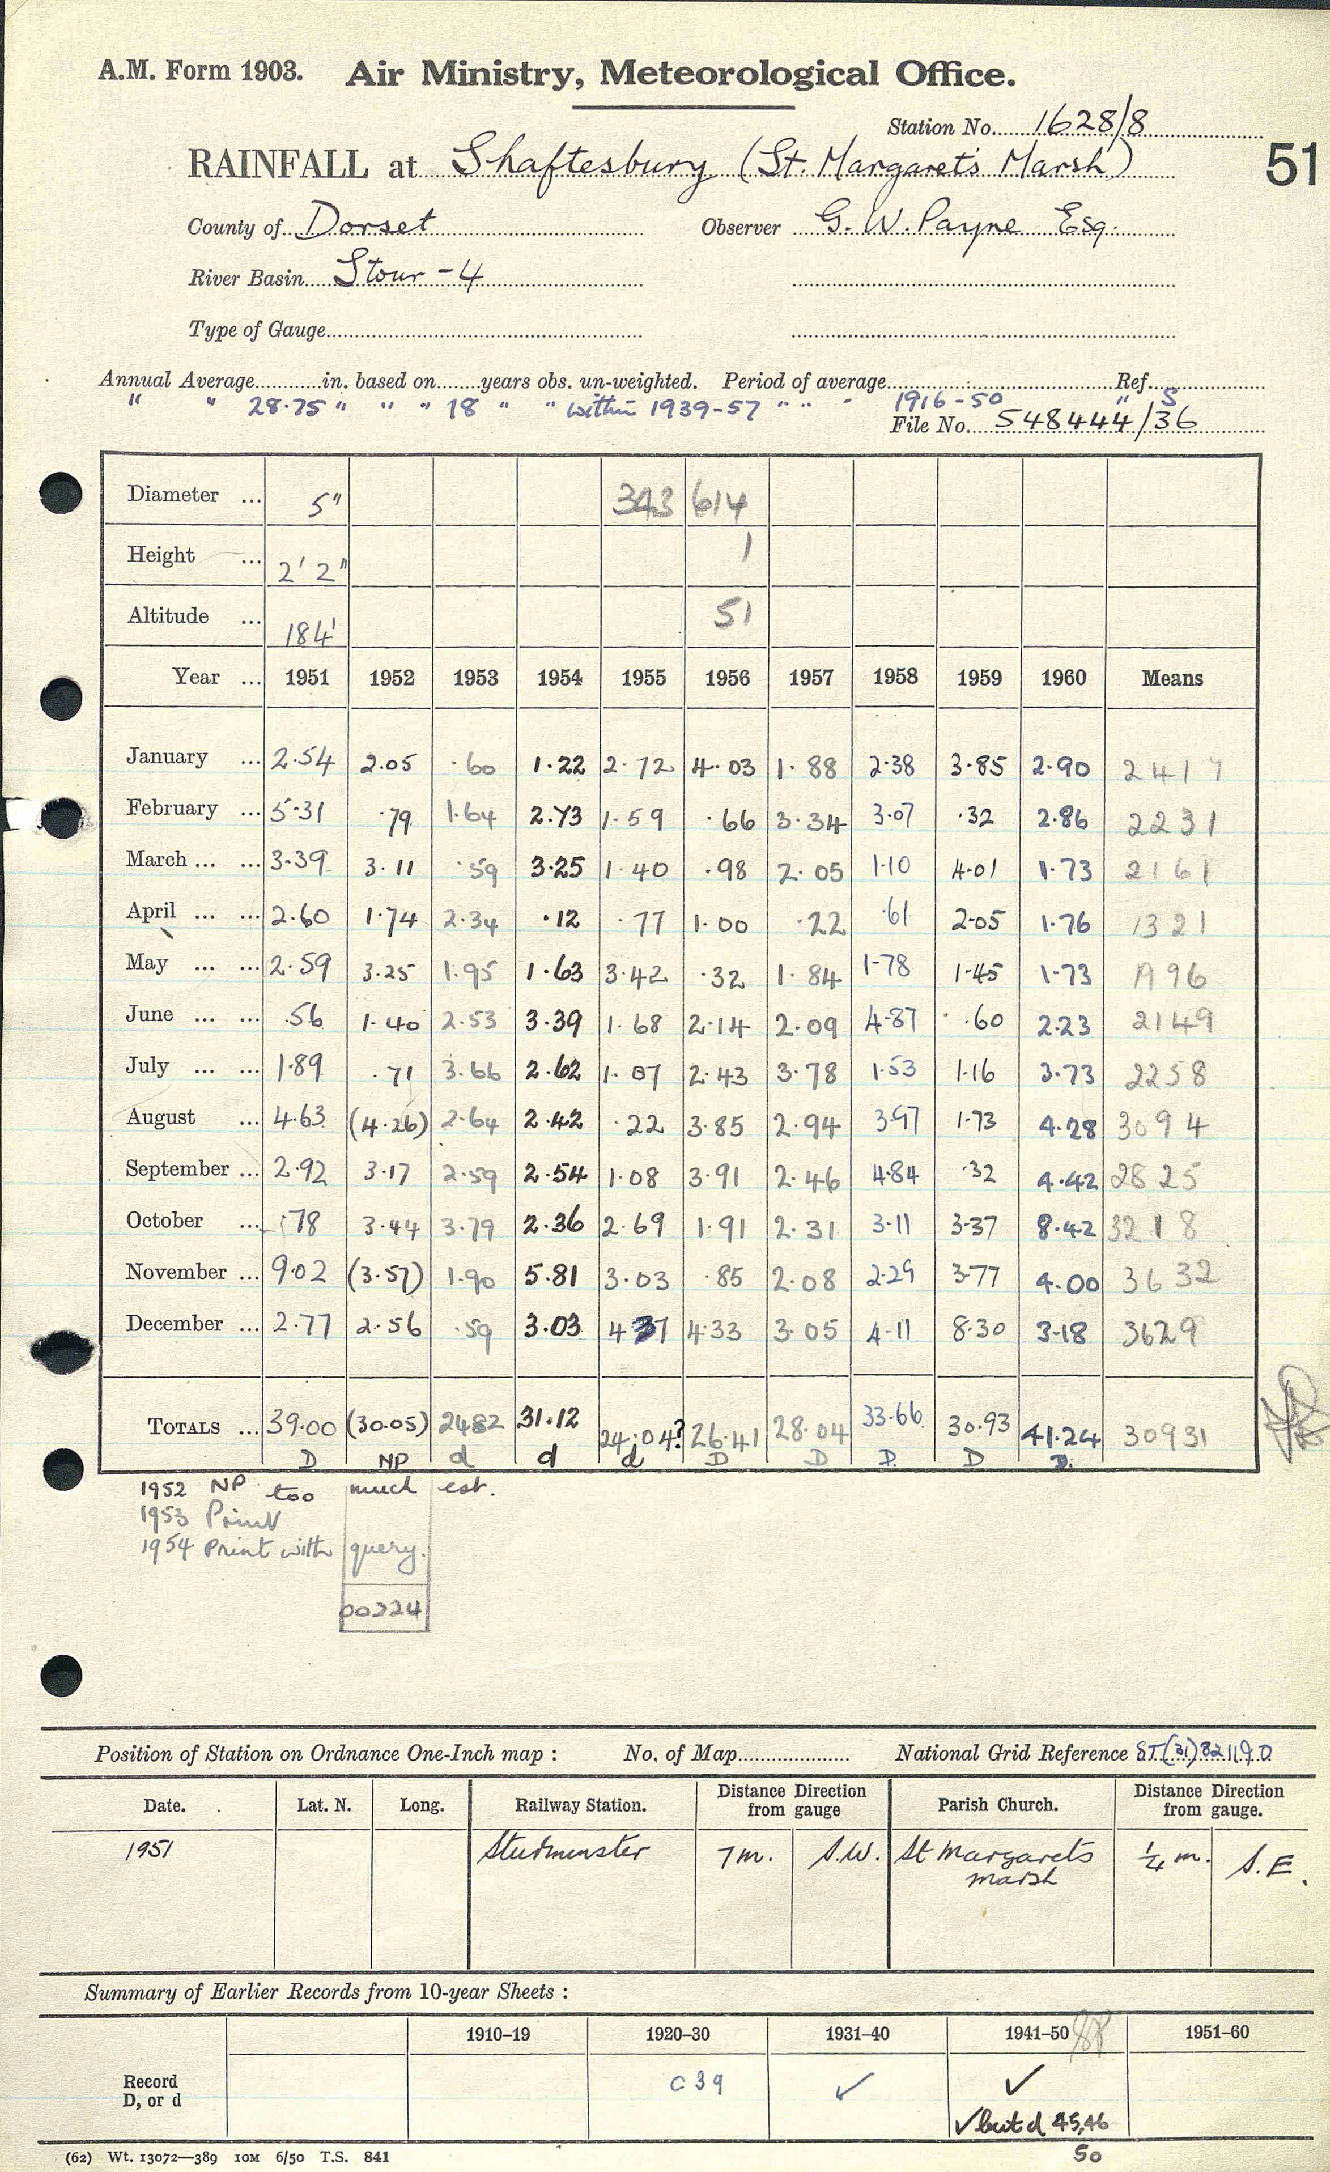 A.M. Form 1903. Air Ministry, Meteorological Office.
Station No. 1628/8
RAINFALL at Shaftesbury (St. Margaret's Marsh)
51
County of Dorset Observer G. W. Payne Esq.
River Basin Stour - 4
Type of Gauge
Annual Average in. based on years obs. un-weighted. Period of average Ref.
" " 28.75 " " " 18 " " within 1939-57 " " " 1916-50 " S
File No. 548444/36
Diameter ... 5" 343 614
Height ... 2' 2" 1
Altitude ... 184' 51
Year ... 1951 1952 1953 1954 1955 1956 1957 1958 1959 1960 Means
January ... 2.54 2.05 .60 1.22 2.72 4.03 1.88 2.38 3.85 2.90 2417
February ... 5.31 .79 1.64 2.73 1.59 .66 3.34 3.07 .32 2.86 2231
March ... ... 3.39 3.11 .59 3.25 1.40 .98 2.05 1.10 4.01 1.73 2161
April ... ... 2.60 1.74 2.34 .12 .77 1.00 .22 .61 2.05 1.76 1321
May ... ... 2.59 3.25 1.95 1.63 3.42 .32 1.84 1.78 1.45 1.73 1996
June ... ... .56 1.40 2.53 3.39 1.68 2.14 2.09 4.87 .60 2.23 2149
July ... ... 1.89 .71 3.66 2.62 1.07 2.43 3.78 1.53 1.16 3.73 2258
August ... 4.63 (4.26) 2.64 2.42 .22 3.85 2.94 3.97 1.73 4.28 3094
September ... 2.92 3.17 2.59 2.54 1.08 3.91 2.46 4.84 .32 4.42 2825
October ... .78 3.44 3.79 2.36 2.69 1.91 2.31 3.11 3.37 8.42 3218
November ... 9.02 (3.57) 1.90 5.81 3.03 .85 2.08 2.29 3.77 4.00 3632
December ... 2.77 2.56 .59 3.03 4.37 4.33 3.05 4.11 8.30 3.18 3629
TOTALS ... 39.00 (30.05) 2482 31.12 24.04? 26.41 28.04 33.66 30.93 41.24 30931
D NP d d d D D D. D D.
1952 NP too much est.
1953 Print
1954 Print with query.
00224
Position of Station on Ordnance One-Inch map : No. of Map National Grid Reference ST(31)821190
Date. Lat. N. Long. Railway Station. Distance from Direction gauge Parish Church. Distance from Direction gauge.
1951 Sturminster 7m. S.W. St Margarets Marsh 1/4 m. S.E.
Summary of Earlier Records from 10-year Sheets :
1910–19 1920–30 1931–40 1941–50 1951–60
Record D, or d C39 ✓ ✓
✓ but d 45,46
50
(62) Wt. 13072—389 10M 6/50 T.S. 841